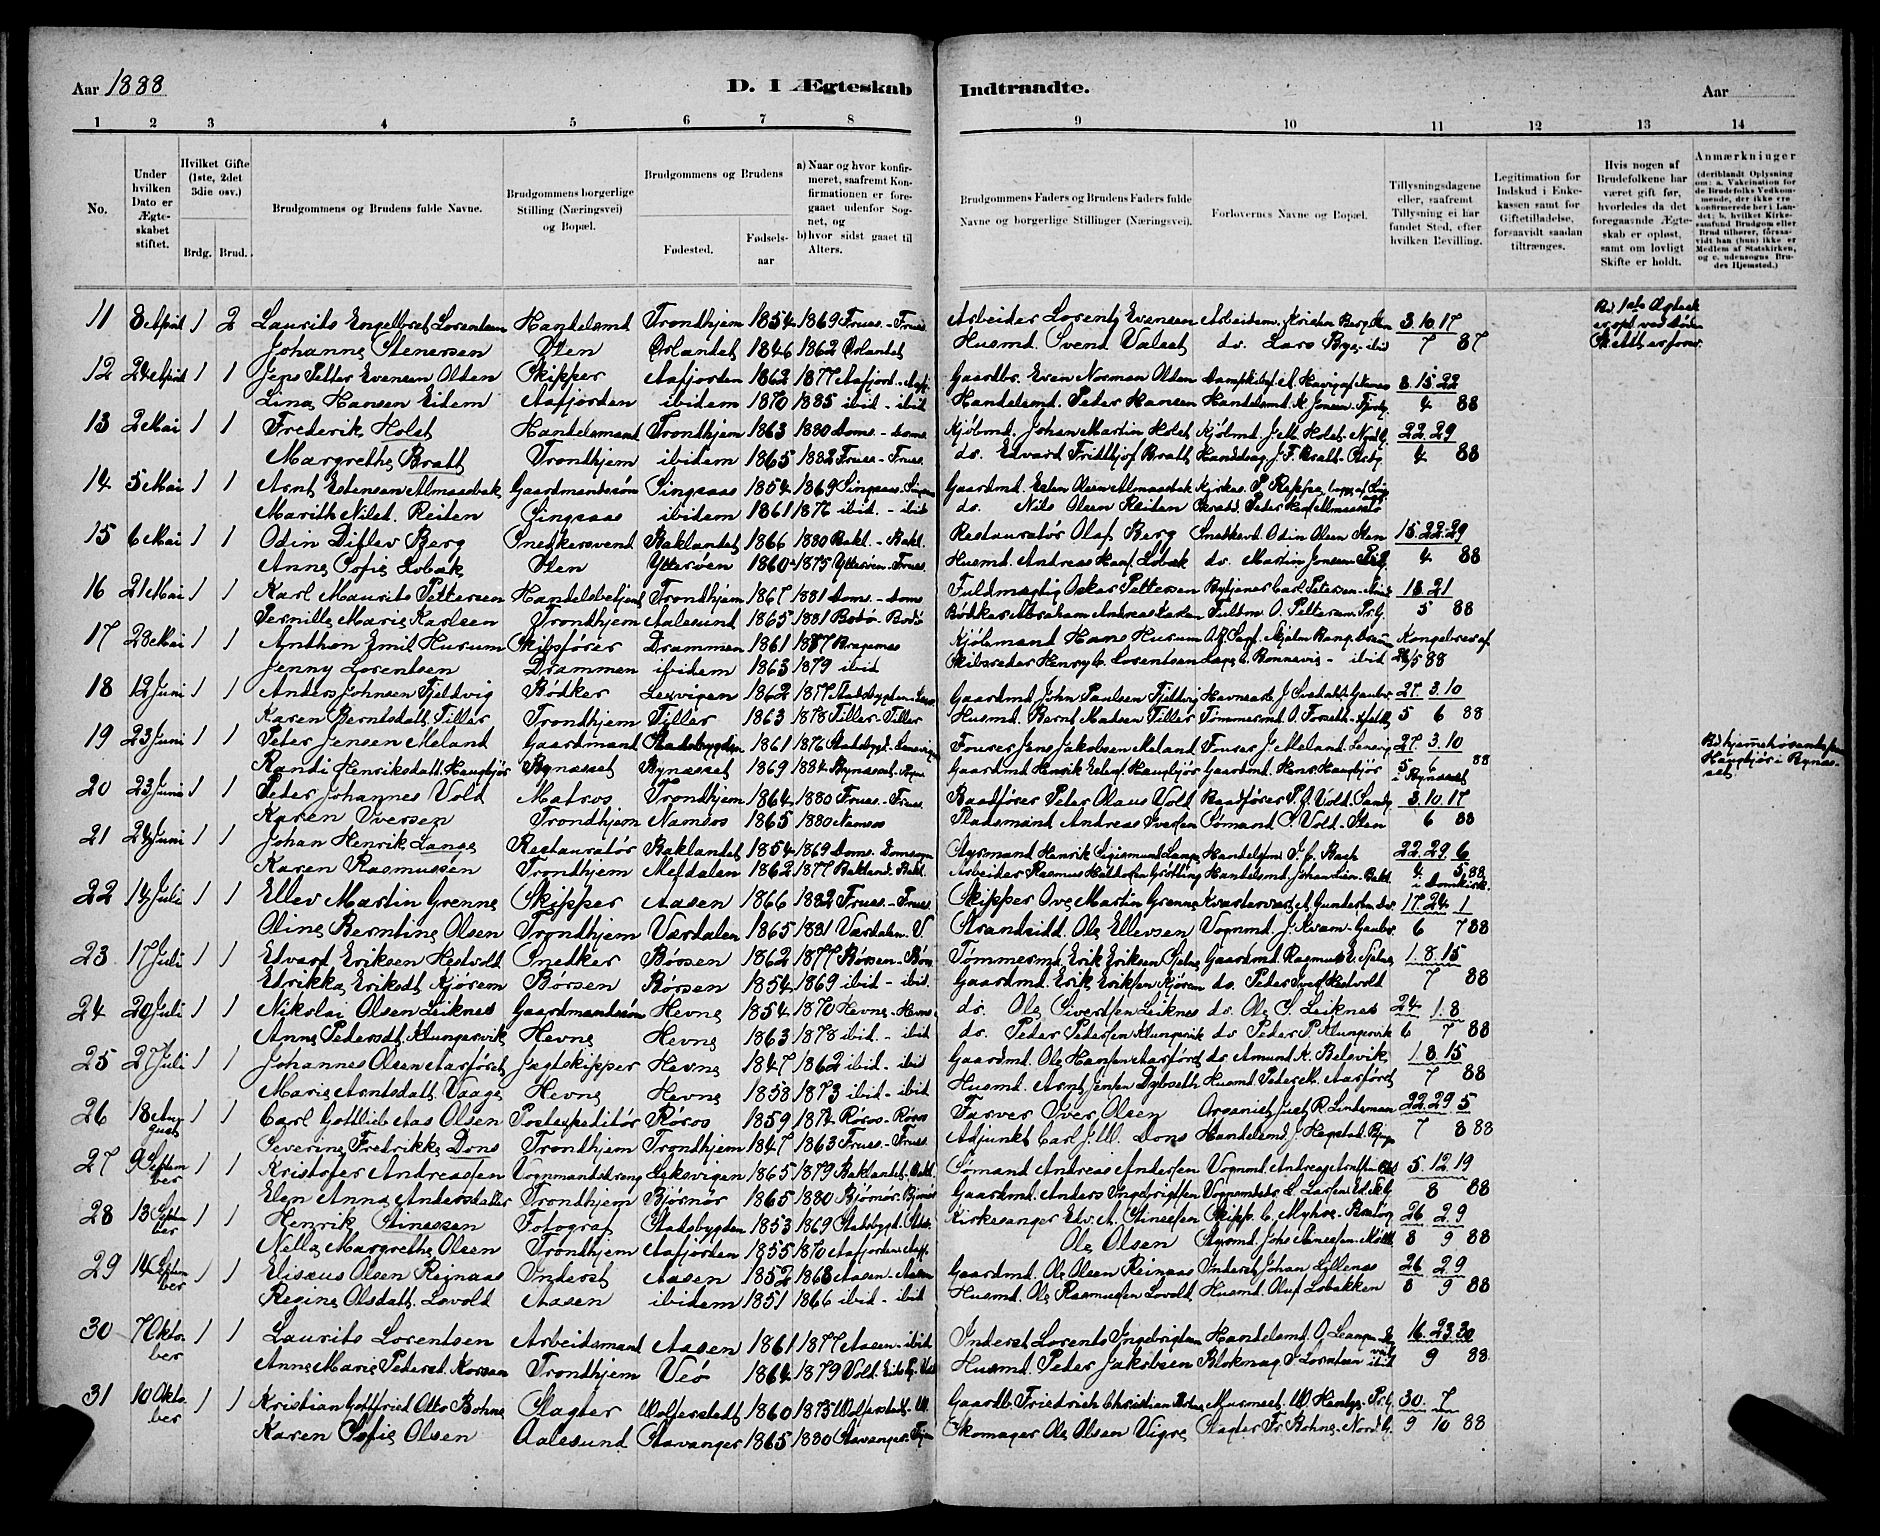 Aar 1888 D. I Ægteskab Indtraadte. Aar
1 2 3 4 5 6 7 8 9 10 11 12 13 14
No.
Under hvilken Dato er Ægteskabet stiftet.
Hvilket Gifte (1ste, 2det 3die osv.)
Brdg. Brud.
Brudgommens og Brudens fulde Navne.
Brudgommens borgerlige Stilling (Næringsvei) og Bopæl.
Brudgommens og Brudens
Fødested. Fødselsaar
a) Naar og hvor konfirmeret, saafremt Konfirmationen er foregaaet udenfor Sognet, og
b) hvor sidst gaaet til Alters.
Brudgommens Faders og Brudens Faders fulde Navne og borgerlige Stillinger (Næringsvei).
Forlovernes Navne og Bopæl.
Tillysningsdagene eller, saafremt Tillysning ei har fundet Sted, efter hvilken Bevilling.
Legitimation for Indskud i Enkekassen samt for Giftetilladelse, forsaavidt saadan tiltrænges.
Hvis nogen af Brudefolkene har været gift før, hvorledes da det foregaaende Ægteskab er opløst, samt om lovligt Skifte er holdt.
Anmærkninger (deriblandt Oplysning om: a. Vakcination for de Brudefolks Vedkommende, der ikke ere konfirmerede her i Landet; b. hvilket Kirkesamfund Brudgom eller Brud tilhører, forsaavidt han (hun) ikke er Medlem af Statskirken, og c. udensogns Brudes Hjemsted.)
11 8 April 1 2 Laurits Engelbret Lorentsen Handelsmd Trondhjem 1854 1869 Frues - Frues. Arbeider Lorentz Evensen Arbeidsm. Kristen Berg 3. 10. 17
Johanne Stenersen Ilen Ørlandet 1846 1862 Ørlandet Husmd. Svend Valset do. Lars Brye - ibid 7 87
12 24 April 1 1 Jens Petter Evensen Olden Skipper Aafjorden 1862 1877 Aafjord - Aafj. Gaardbr. Even Norman Olden 8. 15. 22
Line Hansen Eidem Aafjorden ibidem 1870 1885 ibid - ibid Handelsmd. Peder Hansen Handelsmd. K. Jensen 4 88
13 2 Mai 1 1 Frederik Holst Handelsmand Trondhjem 1863 1880 Doms. - Doms Kjøbmd. Johan Martin Holst Kjøbmd. J. M. Holst - 22. 29
Margrethe Bratt Trondhjem ibidem 1865 1882 Frues - Frues. do. Edvard Fridthjof Bratt J. F. Bratt - 4 88
14 5 Mai 1 1 Arnt Estensen Almaasbak Gaardmandssøn Singsaas 1854 1869 Singsaas - Gaardmd. Esten Olsen Almaasbak Kirkes. P. Reppe
Marith Nilsd. Reiten Singsaas ibidem 1861 1876 ibid. - ibid do. Nils Olsen Reiten
15 6 Mai 1 1 Odin Ditlev Berg Snedkersvend Baklandet 1866 1880 Bakl. - Bakl. Restauratør Olaf Berg Snedkersvd. Odin Olsen Ilen 15. 22. 29
Anne Sofie Lobak Ilen Ytterøen 1860 1875 Ytterøen - Frues Husmd. Andreas Lobak do. Martin Jensen 4 88
16 21 Mai 1 1 Karl Maurits Pettersen Handelsbetjent Trondhjem 1867 1881 Doms - Doms Fuldmægtig Oskar Pettersen Bytjener Carl Petersen - 13. 21
Pernille Marie Karlsen Trondhjem Aalesund 1865 1881 Bodø - Bodø Bødker Abraham Andreas Karlsen Fuldm. O. Pettersen 5 88
17 28 Mai 1 1 Anthon Emil Hurum Skibsfører Drammen 1861 1887 Bragernæs Kjøbmand Hans Hurum Kongebrev af
Jenny Lorentsen Drammen ibidem 1863 1879 ibid Skibsreder Henry C. Lorentsen C. Bonnevie - ibid 26/5 88
18 12 Juni 1 1 Anders Johnsen Fjeldvig Bødker Lexvigen 1862 1877 Stadsbygden - Gaardmd. John Paulsen Fjeldvig 27. 3. 10
Karen Berntsdatt. Tiller Trondhjem Tiller 1863 1878 Tiller - Tiller Husmd. Bernt Madsen Tiller Tømmermd. O. Forseth - 5 6 88
19 23 Juni 1 1 Peter Jensen Meland Gaardmand Stadsbygden 1861 1876 Stadsbygd. - Fouser Jens Jakobsen Meland Fouser J. Meland 27. 3. 10
Randi Henriksdatt. Haugbjør Bynæsset Bynæsset 1869 1884 Bynæsset - Gaardmd. Henrik Haugbjør Gaardmd. Henr. Haugbjør 5 6 88 i Bynæsset Bd. hjemmehørende paa Haugbjør i Bynæsset
20 23 Juni 1 1 Peter Johannes Vold Matros Trondhjem 1864 1880 Frues - Frues Baadfører Peter Olaus Vold Baadfører P. O. Vold 3. 10. 17
Karen Iversen Trondhjem Namsos 1865 1880 Namsos Pladsmand Andreas Iversen Sømand C. Vold - Ilen 6 88
21 24 Juni 1 1 Johan Henrik Lange Restauratør Baklandet 1854 1869 Doms. Domsogn Styrmand Henrik Sigismund Lange 22. 29. 6
Karen Rasmussen Trondhjem Mefdalen 1862 1877 Bakland - Bakl. Arbeider Rasmus Handelsmd. Johan Lien - Bakl. 4 5, 88 i Domkirk.
22 14 Juli 1 1 Ellev Martin Grenne Skipper Aasen 1866 1882 Frues - Frues. Skipper Ove Martin Grenne 17. 24 1
Oline Berntine Olsen Trondhjem Værdalen 1865 1881 Værdalen. V. Strandsidd. Ole Ellevsen Vognmd. J. Kvam - 6 7 88
23 17 Juli 1 1 Edvard Eriksen Hestvold Snedker Børsen 1862 1877 Børsen - Tømmermd. Erik Eriksen Gaardmd. Rasmus E. 1. 8. 15
Edrikke Eriksdt. Kjørem Børsen Børsen 1854 1869 ibid - ibid. Gaardmd. Erik Eriksen Kjørem do. Peder Hestvold 7 88
24 20 Juli 1 1 Nikolai Olsen Leiknes Gaardmandssøn Hevne 1854 1870 Hevne - Hevne do. Ole Sivertsen Leiknes do. Ole S. Leiknes 24 1. 8
Anne Pedersdt. Klungervik Hevne Hevne 1863 1878 ibid. - ibid do. Peder Pedersen Klungervik do Peder P. Klungervik 6 7 88
25 27 Juli 1 1 Johannes Olsen Aarføret Jagtskipper Hevne 1847 1862 ibid. - ibid Gaardmd. Ole Hansen Aarføret do Amund K. Belsvik 1. 8. 15
Marie Arntsdatt. Vaage Hevne Hevne 1853 1873 ibid - ibid Husmd. Arnt Jensen Dybseth Husmd. Peder M. Aarføret 7 88
26 18 August 1 1 Carl Gottlieb Aas Olsen Postexpeditør Røros 1859 1874 Røros - Røros Farver Iver Olsen Organist Just R. Lindeman 22. 29 5
Severine Fredrikke Dons Trondhjem Trondhjem 1847 1863 Frues - Frues. Adjunkt Carl J. W. Dons Handelsmd. J. Hegstad 7 8 88
27 9 September 1 1 Kristofer Andreassen Vognmandsdreng Leksvigen 1865 1879 Baklandet - Bakl. Sømand Andreas Andersen Vognmd. Andreas 5. 12. 19
Elen Anna Andersdatter Trondhjem Bjørnør 1865 1880 Bjørnør. Gaardmd. Anders Ingebrigtsen L. Larsen 8 88
28 13 September 1 1 Henrik Stinessen Fotograf Stadsbygden 1853 1869 Stadsbygd. Kirkesanger Edv. A. Stinessen Skipp. C. Myhre 26 2. 9
Nelle Margrethe Olsen Trondhjem Aafjorden 1855 1870 Aafjorden - Aafj. Ole Olsen 8 9 88
29 14 September 1 1 Elisæus Olsen Reinaas Inderst Aasen 1852 1868 Aasen - Aasen Gaardmd. Ole Olsen Reinaas Inderst Johan Lillenes 26 2. 9
Regine Olsdatt. Lovold Aasen ibidem 1851 1866 ibid - ibid Husmd. Ole Rasmussen Lovold Husmd. Oluf Lobakken 8 9 88
30 7 Oktober 1 1 Laurits Lorentsen Arbeidsmand Aasen 1861 1877 Aasen - ibid Inderst Lorents Ingebrigtsen Handelsmd. 16. 23. 30
Anne Marie Pedersd. Korsan Trondhjem Veø 1864 1879 Vold. Husmd. Peder Jakobsen Lorentsen ibid 9 88.
31 10 Oktober 1 1 Kristian Gottfried Otto Bohne Slagter Wolferstedt 1860 1873 Wolferstedt - Gaardb. Friedrich Christian 30. 7
Karen Sofie Olsen Aalesund Stavanger 1865 1880 Stavanger - Skomager Ole Olsen Vigre Slagter Fr. Bohne - 9 10 88